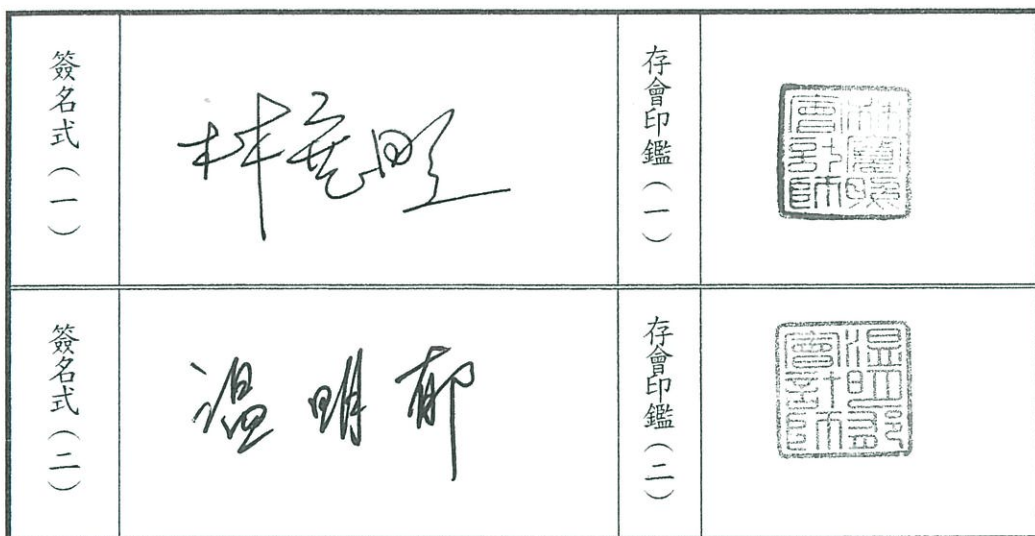 簽名式（一）
存會印鑑（一）
會計師
簽名式（二）
溫明郁
存會印鑑（二）
溫明郁會計師